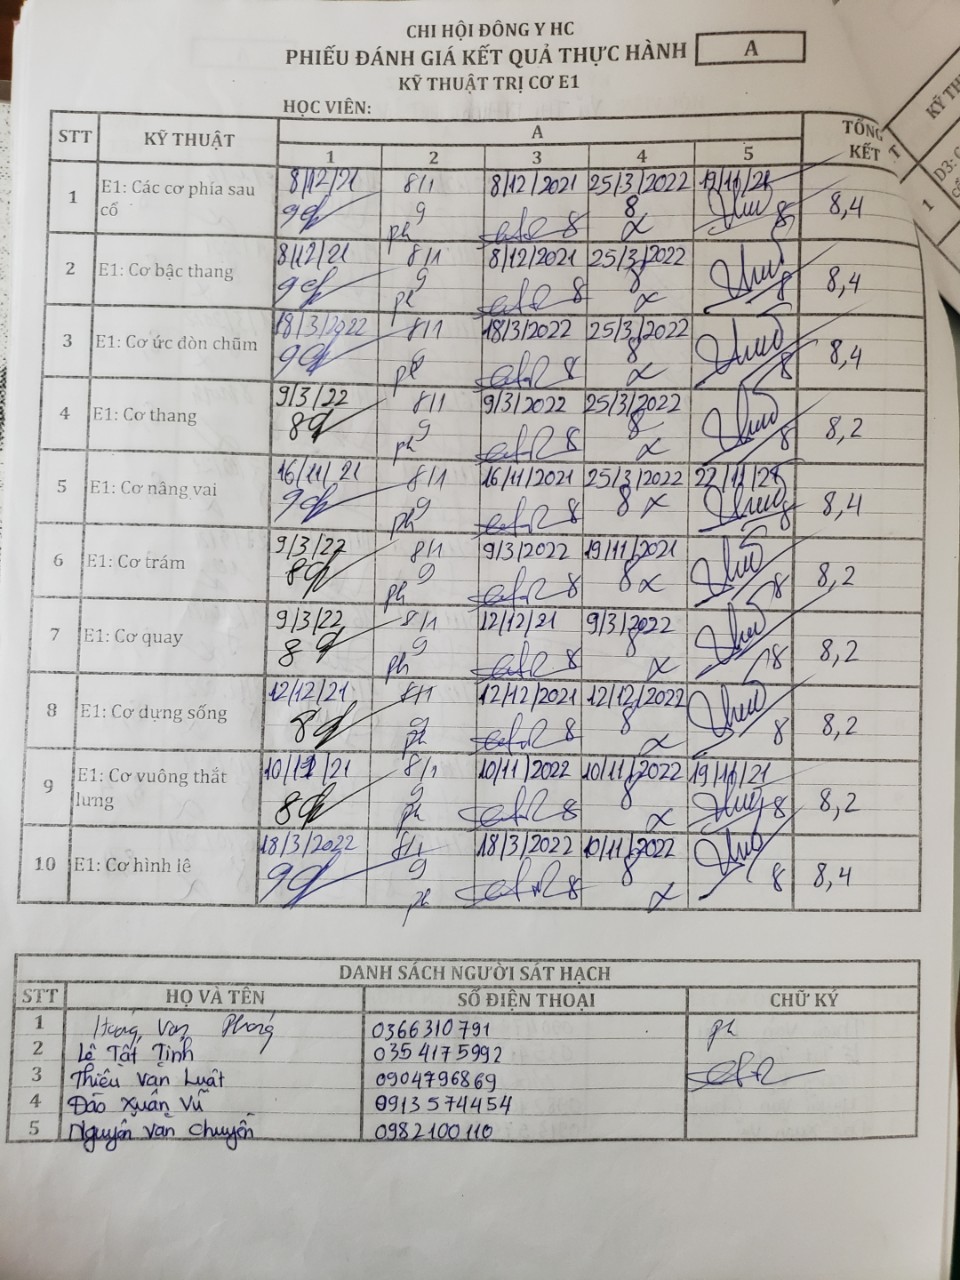 CHI HỘI ĐÔNG Y HC
PHIẾU ĐÁNH GIÁ KẾT QUẢ THỰC HÀNH A
KỸ THUẬT TRỊ CƠ E1
HỌC VIÊN:
STT KỸ THUẬT A TỔNG KẾT
1 2 3 4 5
1 E1: Các cơ phía sau cổ 8/12/21 8/1 8/12/2021 25/3/2022 8,4
9 9 8 8 8
ph
2 E1: Cơ bậc thang 8/12/21 8/1 8/12/2021 25/3/2022 8,4
9 9 8 8 8
ph
3 E1: Cơ ức đòn chũm 18/3/2022 8/1 18/3/2022 25/3/2022 8,4
9 9 8 8 8
ph
4 E1: Cơ thang 9/3/22 8/1 9/3/2022 25/3/2022 8,2
8 9 8 8 8
ph
5 E1: Cơ nâng vai 16/11/21 8/1 16/11/2021 25/3/2022 8,4
9 9 8 8 8
ph
6 E1: Cơ trám 9/3/22 8/1 9/3/2022 19/11/2021 8,2
8 9 8 8 8
ph
7 E1: Cơ quay 9/3/22 8/1 12/12/21 9/3/2022 8,2
8 9 8 8 8
ph
8 E1: Cơ dựng sống 12/12/21 8/1 12/12/2021 12/12/2022 8,2
8 9 8 8 8
ph
9 E1: Cơ vuông thắt lưng 8/1 10/11/2022 10/11/2022 19/11/21 8,2
8 9 8 8 8
ph
10 E1: Cơ hình lê 18/3/2022 8/1 18/3/2022 10/11/2022 8,4
9 9 8 8 8
ph
DANH SÁCH NGƯỜI SÁT HẠCH
STT HỌ VÀ TÊN SỐ ĐIỆN THOẠI CHỮ KÝ
1 Văn Phong 0366310791 ph
2 Lê Tất Tính 0354175992
3 Thiều Văn Luật 0904796869
4 Đào Xuân Vũ 0913574454
5 Nguyễn Văn Chuyên 0982100110
KỸ TH
D3: C
1